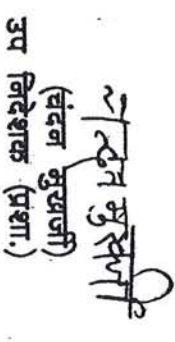 चंदन मुखर्जी
(चंदन मुखर्जी)
उप निदेशक (प्रशा.)